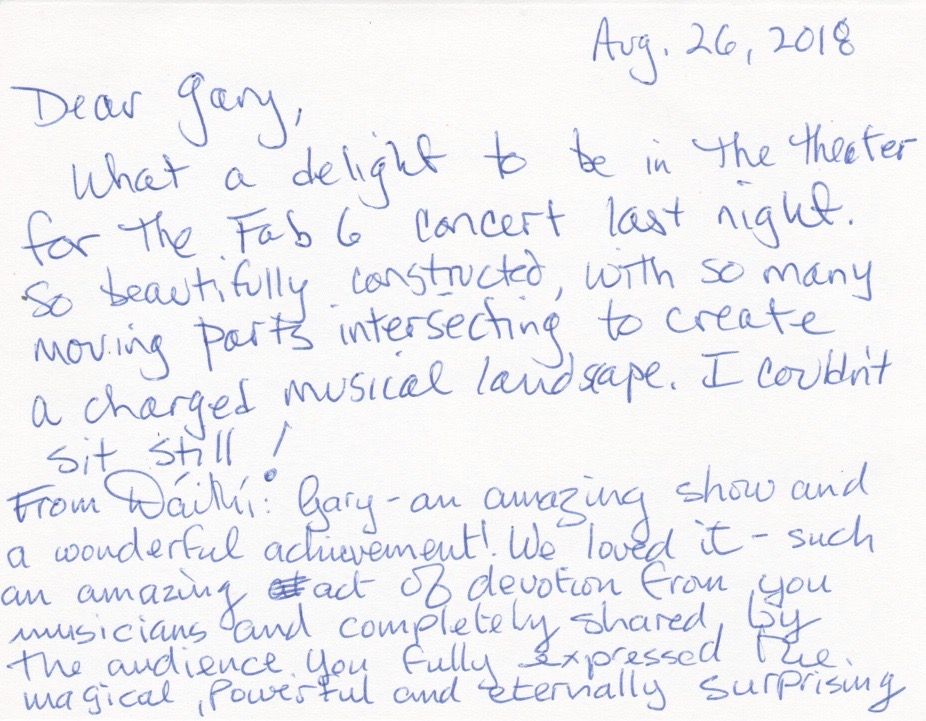 Aug. 26, 2018
Dear Gary,
What a delight to be in the theater
for the Fab 6 concert last night.
So beautifully constructed, with so many
moving parts intersecting to create
a charged musical landscape. I couldn't
sit still!
From Dáithí: Gary - an amazing show and
a wonderful achievement! We loved it - such
an amazing act of devotion from you
musicians and completely shared by
the audience. You fully expressed the
magical, powerful and eternally surprising